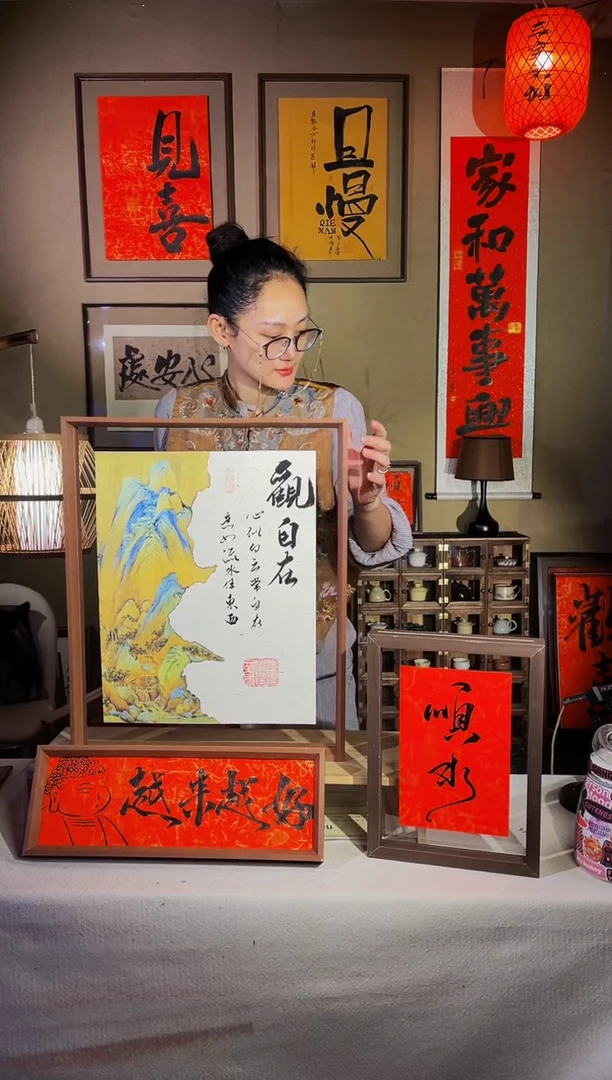 見喜
且慢
QIE
MAN
家和萬事興
心安處
觀自在
心似白云常自在
意如流水任東西
越来越好
順水